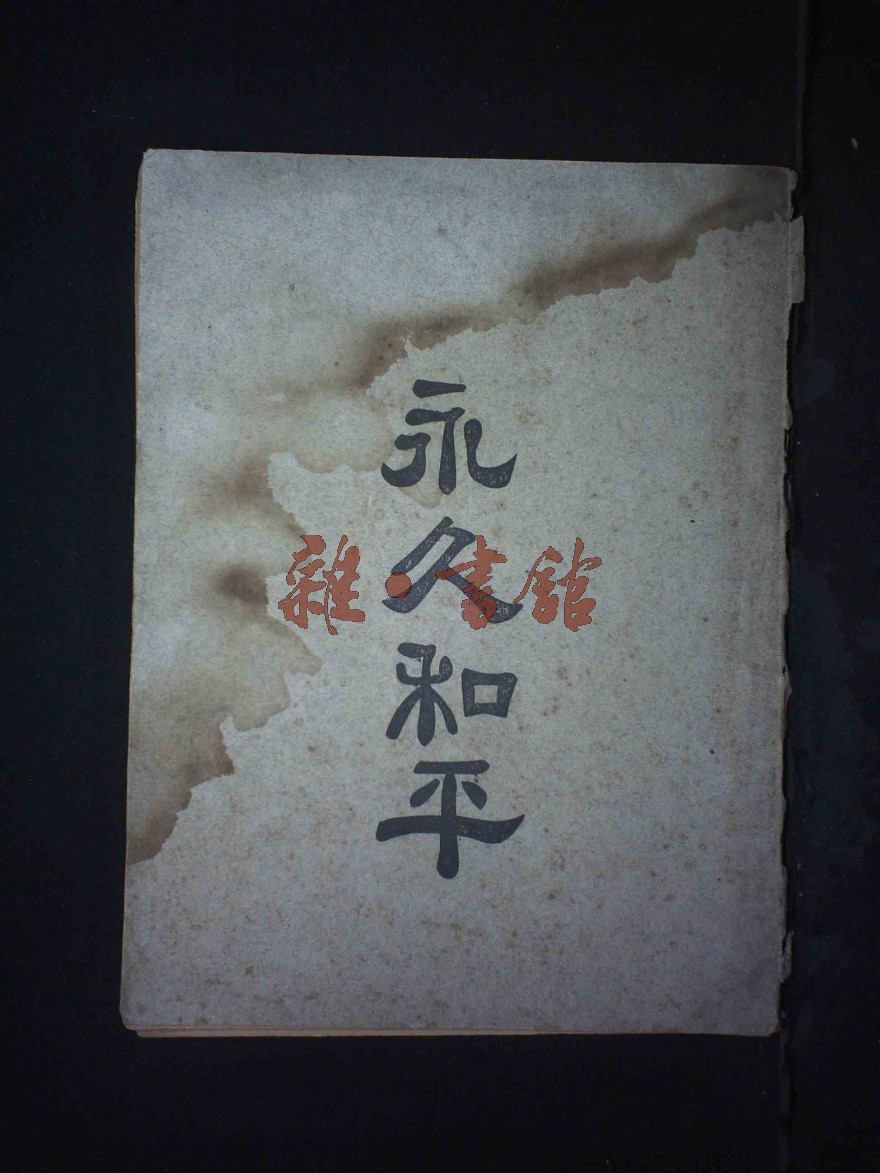 永久和平
雜·書館